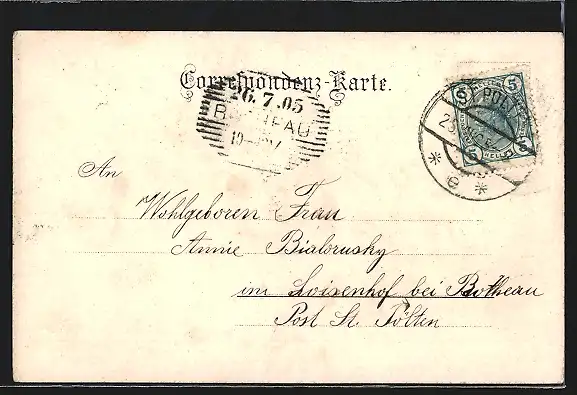 Correspondenz-Karte.
26.7.05
5 5
ST. PÖLTEN
5 HELLER 5
e
An
Wohlgeboren Frau
Annie Bialorusky
im Loisenhof bei Botheau
Post St. Pölten